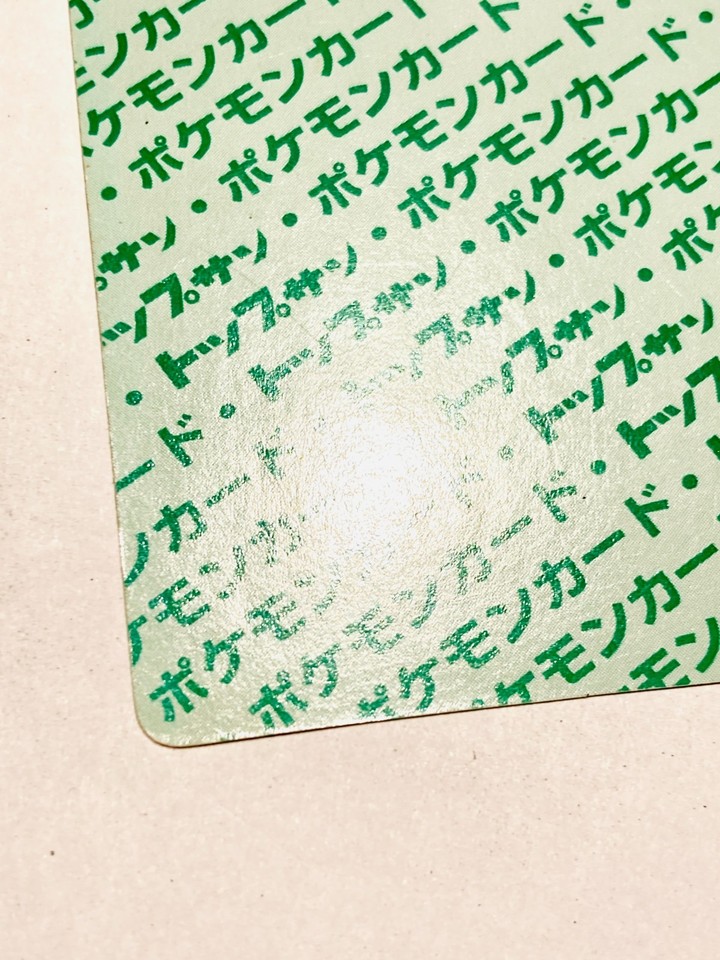 ンカー
ケモンカード
・ポケモンカード
サン・ポケモンカード
ップサン・ポケモンカード・
・トップサン・ポケモンカード・
ード・トップサン・ポケモンカー
ンカード トップサン・ポケモン
ケモンカ トップサン・ポケ
ポケモン ド・トップサン
ポケモンカード・トップ
ポケモンカード・ト
ケモンカー
モン